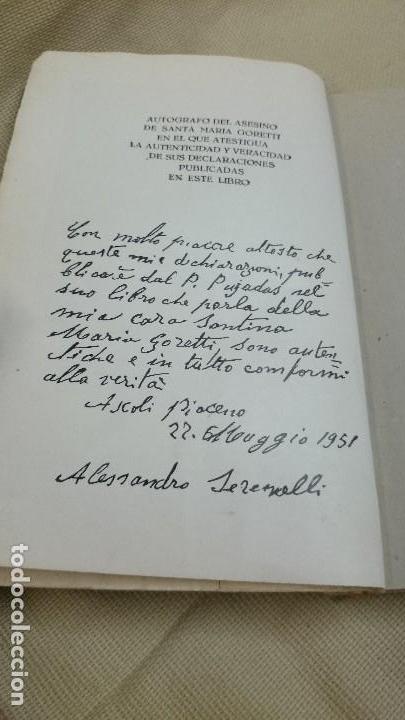 AUTOGRAFO DEL ASESINO
DE SANTA MARIA GORETTI
EN EL QUE ATESTIGUA
LA AUTENTICIDAD Y VERACIDAD
DE SUS DECLARACIONES
PUBLICADAS
EN ESTE LIBRO
Con molto piacere attesto che
queste mie dichiarazioni, pub
blicate dal P. Pujadas nel
suo libro che parla della
mia cara Santina
Maria Goretti, sono auten
tiche e in tutto comformi
alla verità
Ascoli Piceno
27. Maggio 1951
Alessandro Serenelli
todocoleccion.net